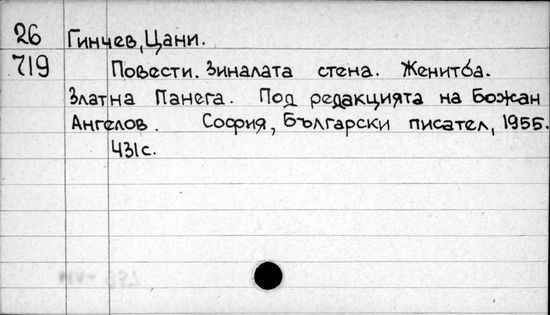 26 Гинчев, Цани.
719 Повести. Зиналата стена. Женитба.
Златна Панега. Под редакцията на Божан
Ангелов. София, Български писател, 1955.
431 с.